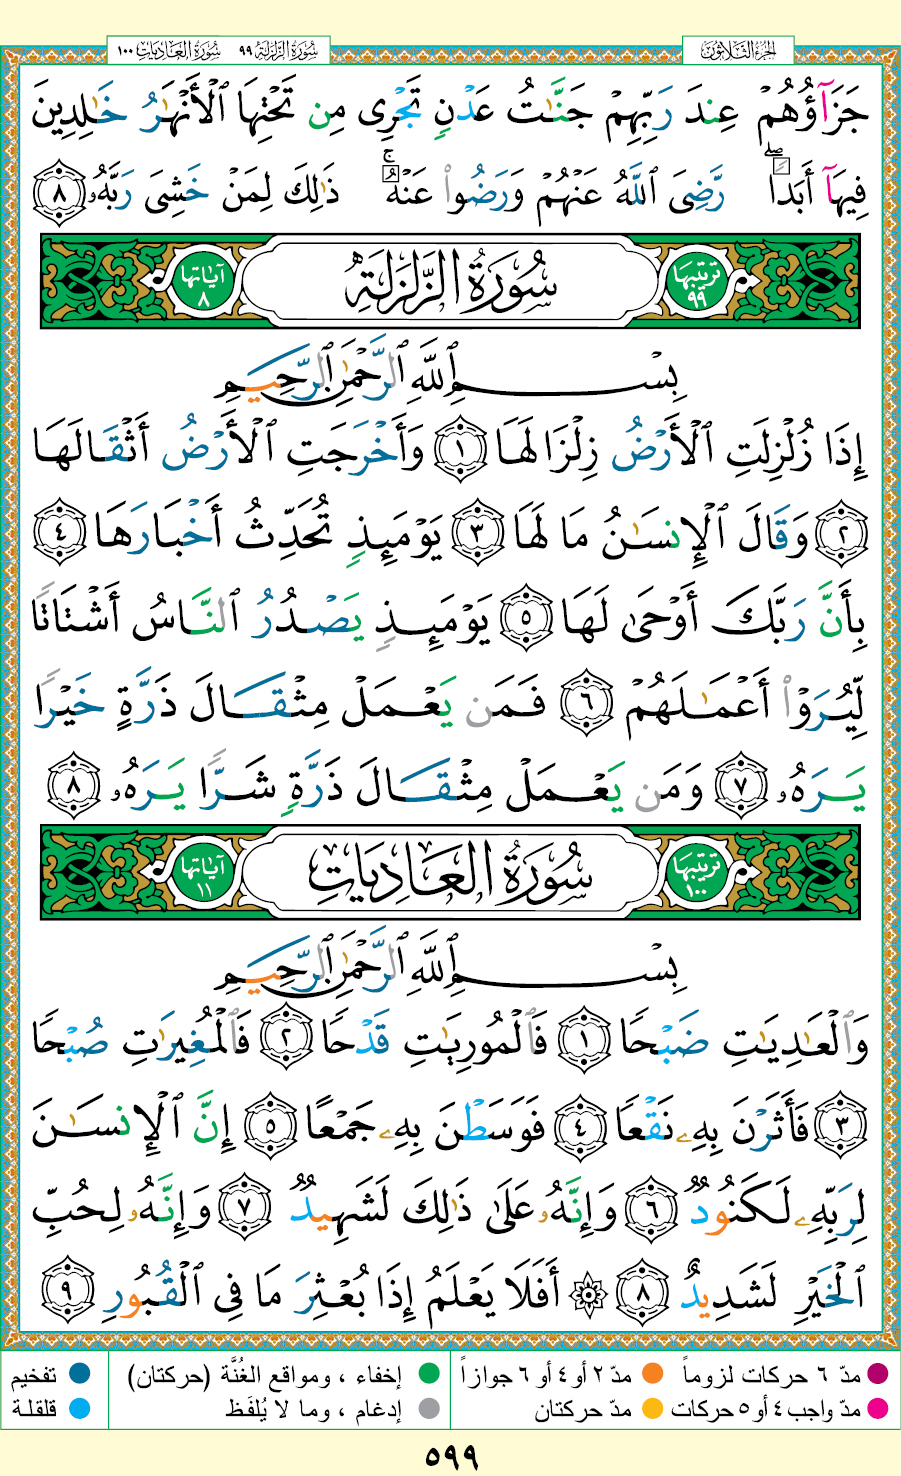 الجزء الثلاثون
سورة الزلزلة ٩٩ سورة العاديات ١٠٠
جَزَآؤُهُمۡ عِندَ رَبِّهِمۡ جَنَّٰتُ عَدۡنٖ تَجۡرِي مِن تَحۡتِهَا ٱلۡأَنۡهَٰرُ خَٰلِدِينَ
فِيهَآ أَبَدٗاۖ رَّضِيَ ٱللَّهُ عَنۡهُمۡ وَرَضُواْ عَنۡهُۚ ذَٰلِكَ لِمَنۡ خَشِيَ رَبَّهُۥ ٨
ترتيبها ٩٩ سُورَةُ الزَّلْزَلَةِ آياتها ٨
بِسۡمِ ٱللَّهِ ٱلرَّحۡمَٰنِ ٱلرَّحِيمِ
إِذَا زُلۡزِلَتِ ٱلۡأَرۡضُ زِلۡزَالَهَا ١ وَأَخۡرَجَتِ ٱلۡأَرۡضُ أَثۡقَالَهَا
٢ وَقَالَ ٱلۡإِنسَٰنُ مَا لَهَا ٣ يَوۡمَئِذٖ تُحَدِّثُ أَخۡبَارَهَا ٤
بِأَنَّ رَبَّكَ أَوۡحَىٰ لَهَا ٥ يَوۡمَئِذٖ يَصۡدُرُ ٱلنَّاسُ أَشۡتَاتٗا
لِّيُرَوۡاْ أَعۡمَٰلَهُمۡ ٦ فَمَن يَعۡمَلۡ مِثۡقَالَ ذَرَّةٍ خَيۡرٗا
يَرَهُۥ ٧ وَمَن يَعۡمَلۡ مِثۡقَالَ ذَرَّةٖ شَرّٗا يَرَهُۥ ٨
ترتيبها ١٠٠ سُورَةُ العَادِيَاتِ آياتها ١١
بِسۡمِ ٱللَّهِ ٱلرَّحۡمَٰنِ ٱلرَّحِيمِ
وَٱلۡعَٰدِيَٰتِ ضَبۡحٗا ١ فَٱلۡمُورِيَٰتِ قَدۡحٗا ٢ فَٱلۡمُغِيرَٰتِ صُبۡحٗا
٣ فَأَثَرۡنَ بِهِۦ نَقۡعٗا ٤ فَوَسَطۡنَ بِهِۦ جَمۡعًا ٥ إِنَّ ٱلۡإِنسَٰنَ
لِرَبِّهِۦ لَكَنُودٞ ٦ وَإِنَّهُۥ عَلَىٰ ذَٰلِكَ لَشَهِيدٞ ٧ وَإِنَّهُۥ لِحُبِّ
ٱلۡخَيۡرِ لَشَدِيدٌ ٨ ۞ أَفَلَا يَعۡلَمُ إِذَا بُعۡثِرَ مَا فِي ٱلۡقُبُورِ ٩
مدّ ٦ حركات لزوماً مدّ ٢ أو ٤ أو ٦ جوازاً إخفاء ، ومواقع الغُنَّة (حركتان) تفخيم
مدّ واجب ٤ أو ٥ حركات مدّ حركتان إدغام ، وما لا يُلفَظ قلقلة
٥٩٩